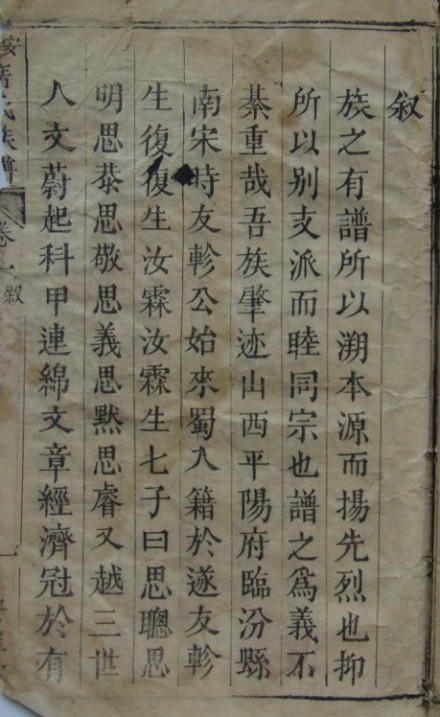 叙
族之有譜所以溯本源而揚先烈也抑
所以别支派而睦同宗也譜之爲義不
綦重哉吾族肇迹山西平陽府臨汾縣
南宋時友軫公始來蜀入籍於遂友軫
生復復生汝霖汝霖生七子曰思聰思
明思恭思敬思義思黙思睿又越三世
人文蔚起科甲連綿文章經濟冠於有
氏族譜
卷一
叙